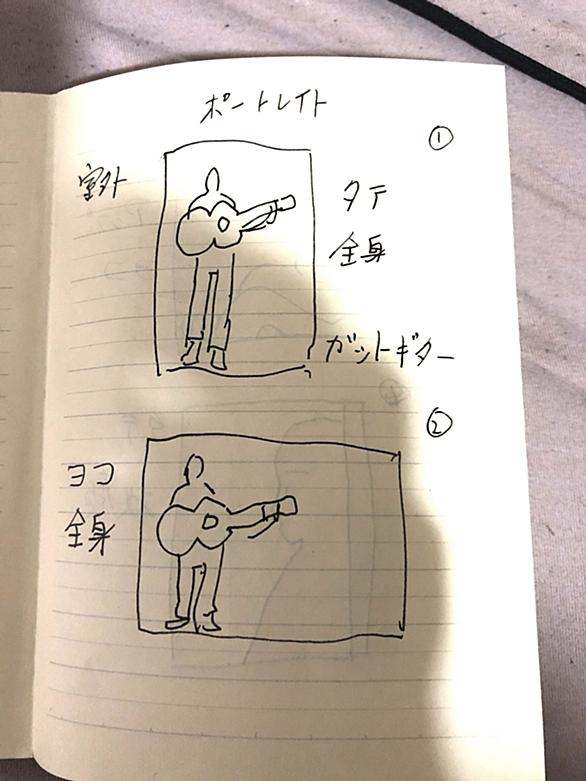 ポートレイト
①
室外
タテ
全身
ガットギター
②
ヨコ
全身